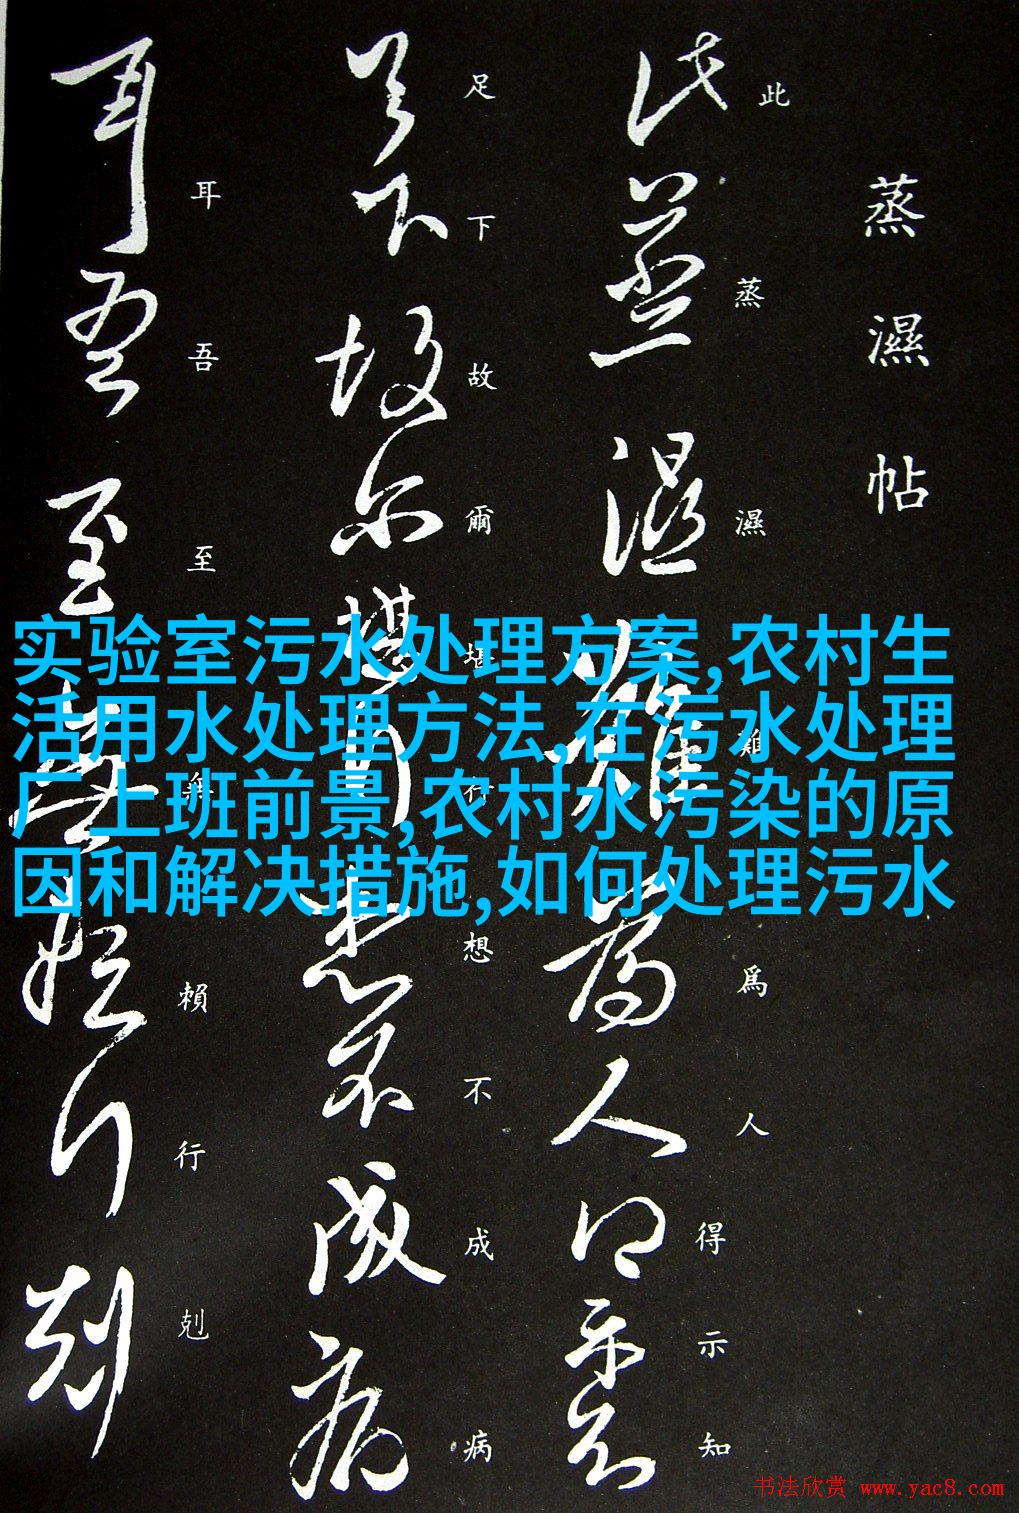 蒸濕帖
此蒸濕難為人得示知
足下故爾堪行想不成病
耳吾至無賴行剋
实验室污水处理方案,农村生
活用水处理方法,在污水处理
厂上班前景,农村水污染的原
因和解决措施,如何处理污水
书法欣赏 www.yac8.com